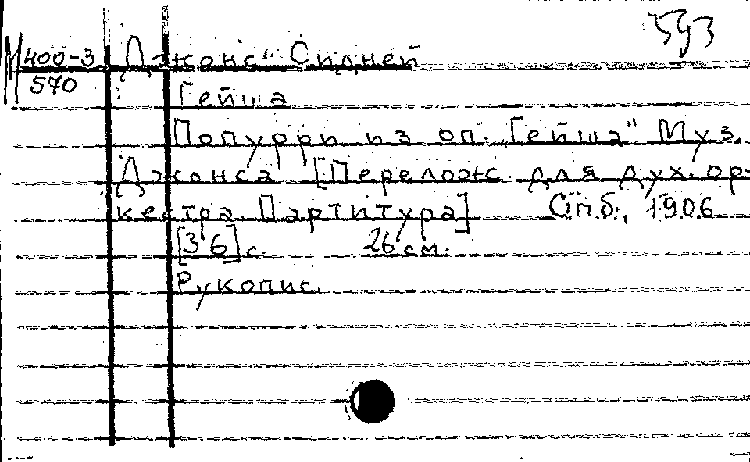 593
М400-3 Джонс Сидней
570
Гейша
Попурри из оп. "Гейша" Муз.
Джонса [Перелож. для дух. ор-
кестра. Партитура] Спб., 1906
[36] с. 26 см.
Рукопис.